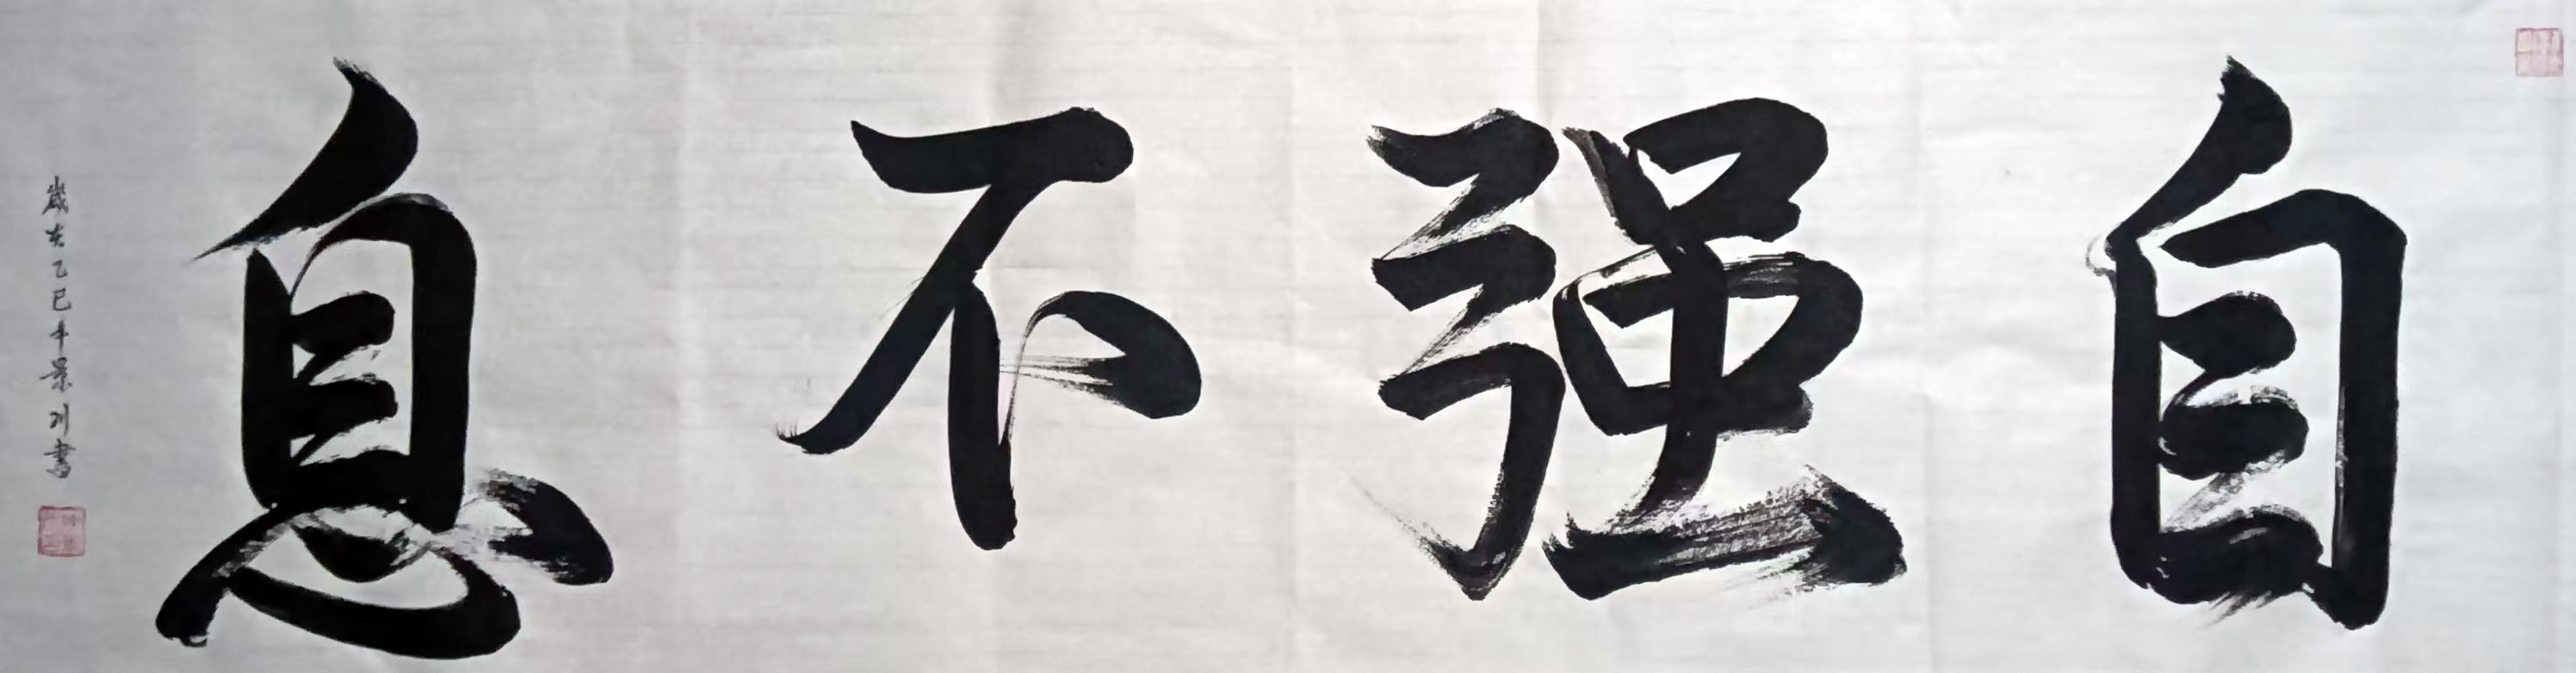 自强不息
歲在乙巳年景川書